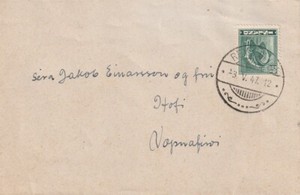 Síra Jakob Einarsson og frú
Hofi
Vopnafirði
ÍSLAND
-3.V.42.-12